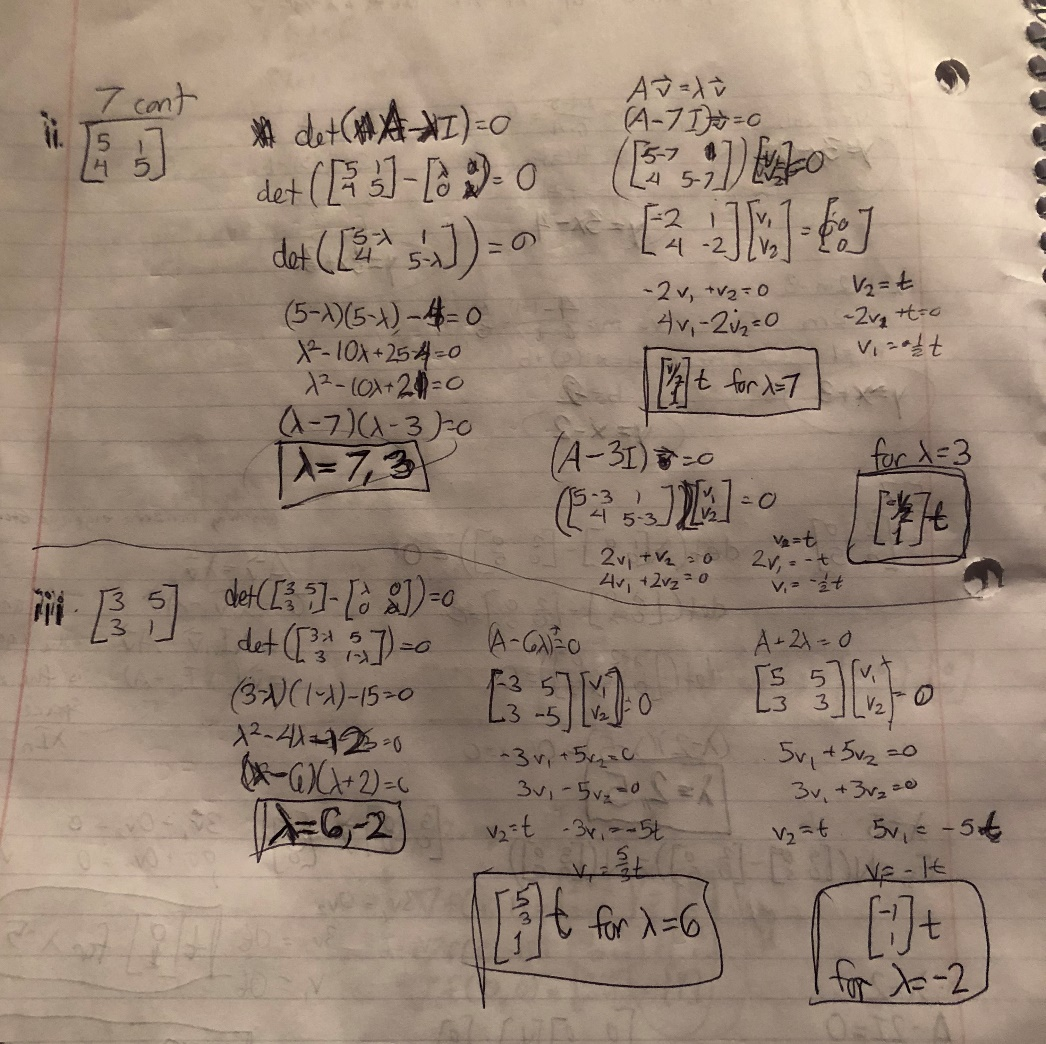 7 cont
ii. [5 1
4 5]
det(A-λI)=0
det([5 1
4 5]-[λ 0
0 λ])=0
det([5-λ 1
4 5-λ])=0
(5-λ)(5-λ)-4=0
λ²-10λ+25-4=0
λ²-10λ+21=0
(λ-7)(λ-3)=0
λ=7,3
Av⃗=λv⃗
(A-7I)v⃗=0
([5-7 1
4 5-7])[v₁
v₂]=0
[-2 1
4 -2][v₁
v₂]=[0
0]
-2v₁+v₂=0
4v₁-2v₂=0
v₂=t
-2v₁+t=0
v₁=½t
[1/2
1]t for λ=7
(A-3I)v⃗=0
([5-3 1
4 5-3])[v₁
v₂]=0
2v₁+v₂=0
4v₁+2v₂=0
v₂=t
2v₁=-t
v₁=-½t
for λ=3
[-1/2
1]t
iii. [3 5
3 1]
det([3 5
3 1]-[λ 0
0 λ])=0
det([3-λ 5
3 1-λ])=0
(3-λ)(1-λ)-15=0
λ²-4λ-12=0
(λ-6)(λ+2)=0
λ=6,-2
(A-6λ)=0
[-3 5
3 -5][v₁
v₂]=0
-3v₁+5v₂=0
3v₁-5v₂=0
v₂=t -3v₁=-5t
v₁=5/3t
[5/3
1]t for λ=6
A+2λ=0
[5 5
3 3][v₁
v₂]=0
5v₁+5v₂=0
3v₁+3v₂=0
v₂=t 5v₁=-5t
v=-1t
[-1
1]t
for λ=-2